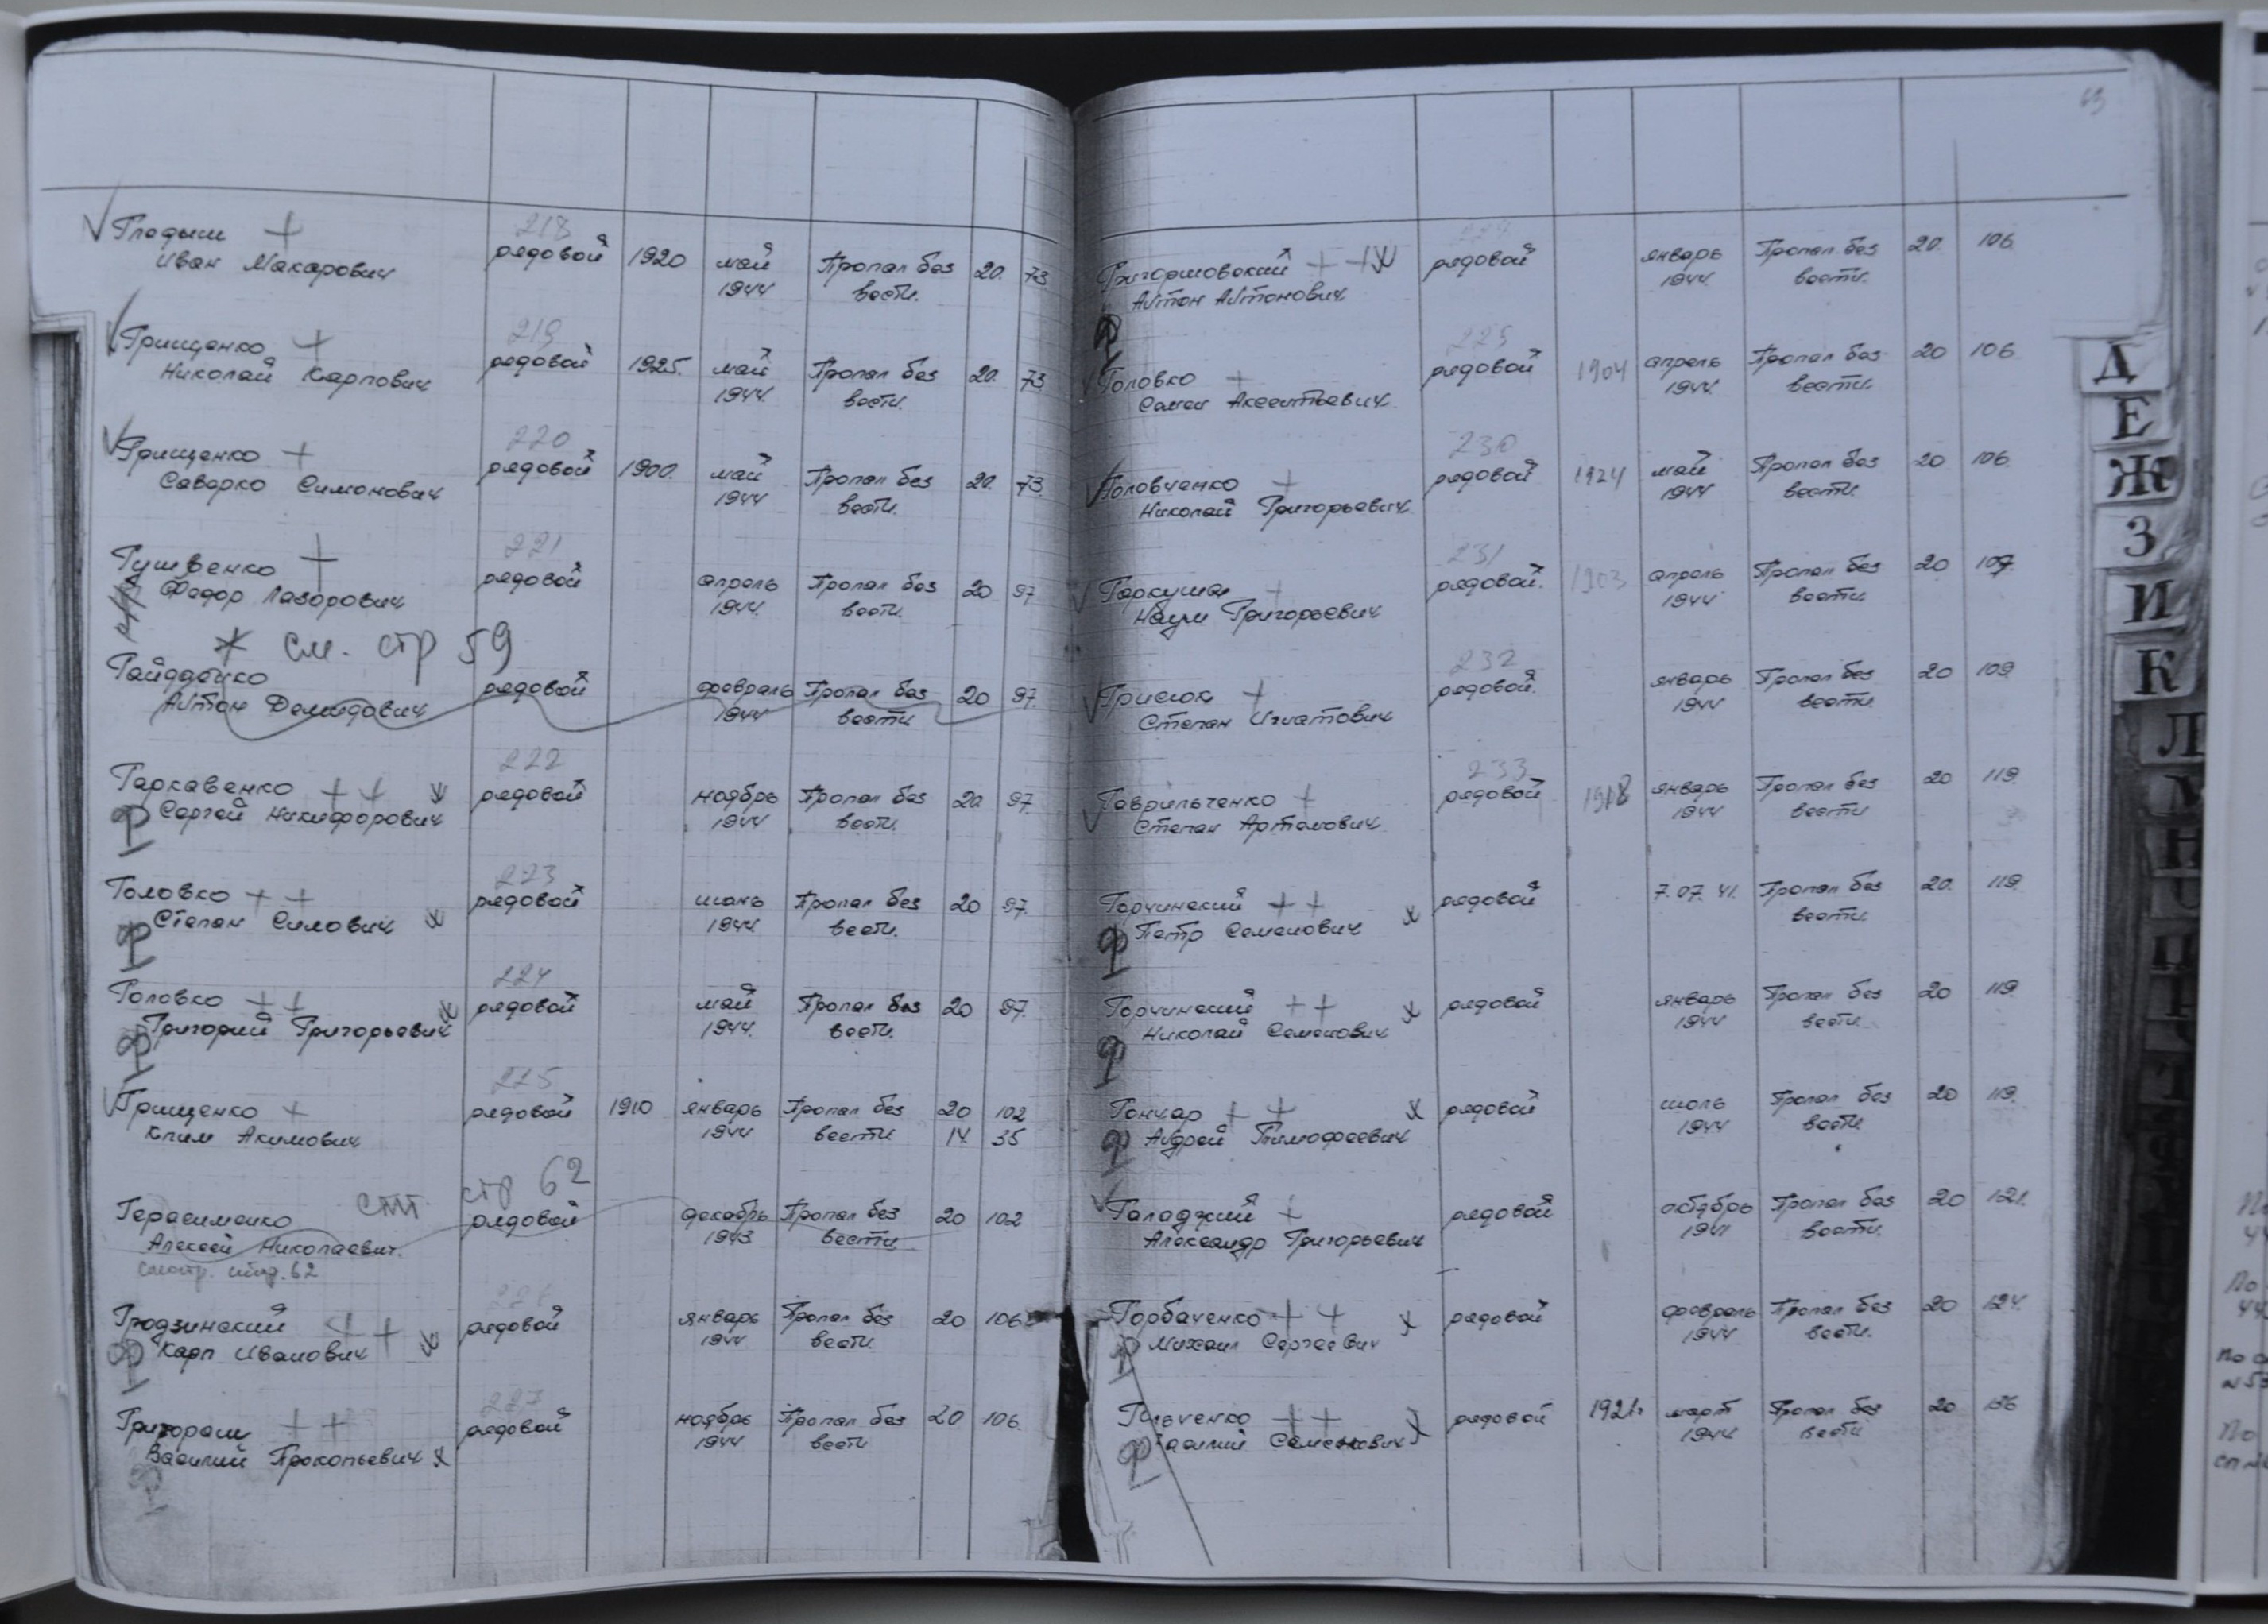 218
Гладыш + рядовой 1920 май Пропал без 20. 73
Иван Макарович 1944 вести.
219
Грищенко + рядовой 1925. май Пропал без 20. 73
Николай Карпович 1944. вести.
220
Грищенко + рядовой 1900. май Пропал без 20. 73
Саварко Симонович 1944 вести.
221
Гушвенко + рядовой апрель Пропал без 20 97
Федор Лазорович 1944. вести.
* см. стр 59
Гайдайко рядовой февраль Пропал без 20 97.
Антон Демидович 1944 вести
222
Гаркавенко + + рядовой ноябрь Пропал без 20 97.
Ф Сергей Никифорович 1944 вести.
223
Головко + + рядовой июнь Пропал без 20 97.
Ф Степан Силович х 1944 вести.
224
Головко + + рядовой май Пропал без 20 97.
Ф Григорий Григорьевич х 1944. вести.
225
Грищенко + рядовой 1910 январь Пропал без 20 102
Клим Акимович 1944 вести 14 35
стр 62
Герасименко рядовой декабрь Пропал без 20 102
Алексей Николаевич. 1943 вести
смотр. стр. 62
226
Гродзинский + + рядовой январь Пропал без 20 106
Ф Карп Иванович х 1944 вести.
227
Григораш + + рядовой ноябрь Пропал без 20 106.
Василий Прокопьевич х 1944 вести
Ф
63
Григоришовский + + х рядовой январь Пропал без 20. 106.
Антон Антонович 1944. вести.
Ф
229
Головко + рядовой 1904 апрель Пропал без 20 106
Семен Аксентьевич 1944. вести.
230
Головченко + рядовой 1924 май Пропал без 20 106.
Николай Григорьевич 1944 вести.
231
Гаркуша + рядовой. 1903 апрель Пропал без 20 109.
Наум Григорьевич 1944 вести
232
Грисюк + рядовой. январь Пропал без 20 109
Степан Игнатович 1944 вести.
233
Гаврильченко + рядовой 1918 январь Пропал без 20 119.
Степан Артемович 1944 вести
Горчинский + + х рядовой 7.07.41. Пропал без 20. 119
Ф Петр Семенович вести.
Горчинский + + х рядовой январь Пропал без 20 119
Николай Семенович 1944 вести
Ф
Гончар + + х рядовой июль Пропал без 20 119.
Ф Андрей Тимофеевич 1944 вести.
Галаджий + рядовой октябрь Пропал без 20 121.
Александр Григорьевич 1941 вести.
Горбаченко + + х рядовой февраль Пропал без 20 124.
Ф Михаил Сергеевич 1944 вести.
+ + рядовой 1921г март Пропал без 20 136
Ф Василий Семенович 1944 вести
Д
Е
Ж
З
И
К
Л